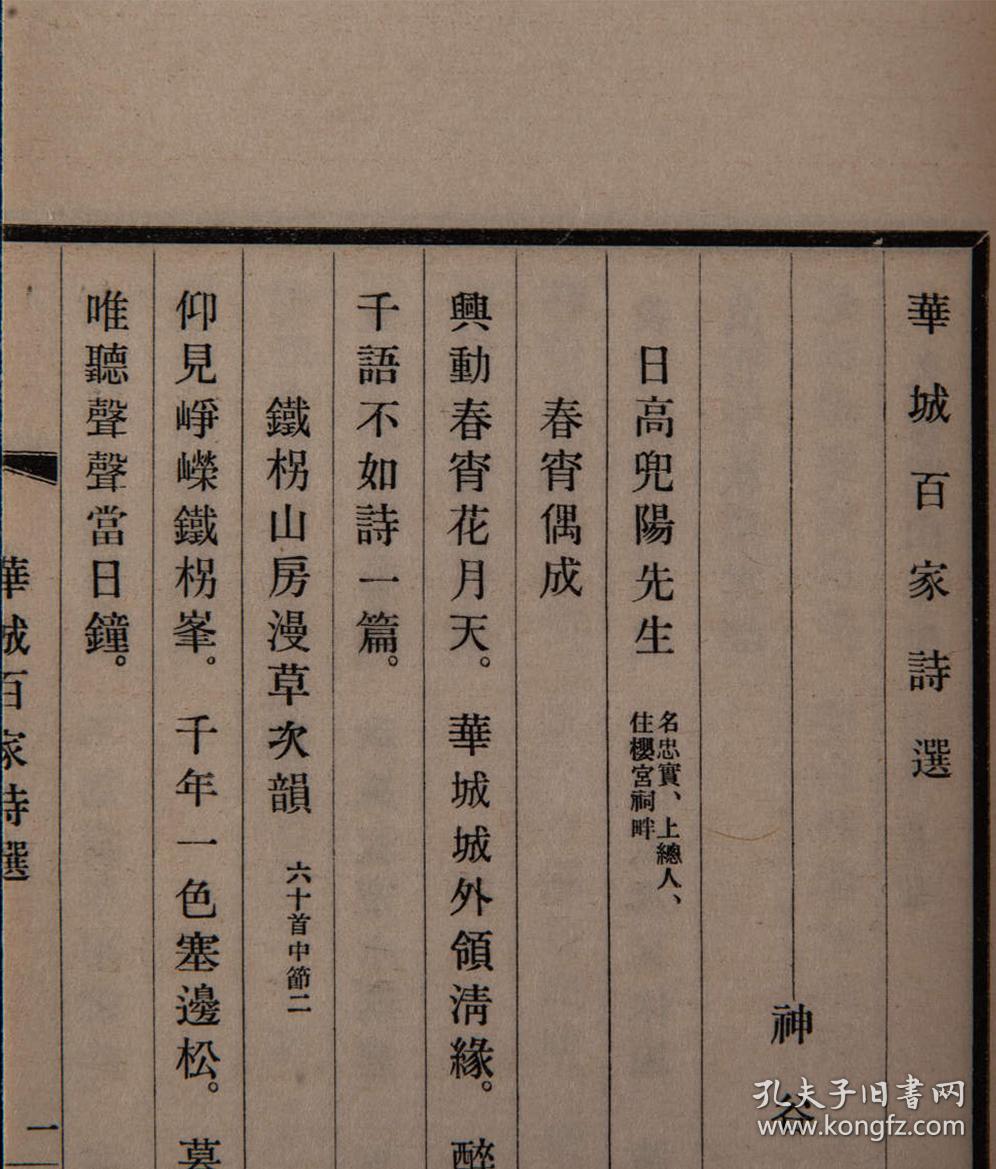 華城百家詩選
神谷
日高兜陽先生 名忠實、上總人、
住櫻宮祠畔
春宵偶成
興動春宵花月天。華城城外領淸緣。醉
千語不如詩一篇。
鐵枴山房漫草次韻 六十首中節二
仰見崢嶸鐵枴峯。千年一色塞邊松。
唯聽聲聲當日鐘。
華城百家詩選
一
孔夫子旧书网
www.kongfz.com